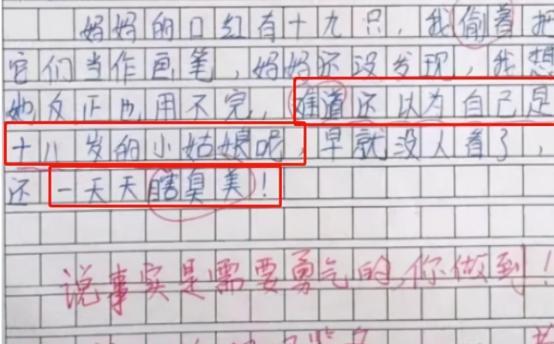 妈妈的口红有十九只，我偷着把
它们当作画笔，妈妈还没发现，我想
她反正也用不完，难道还以为自己是
十八岁的小姑娘呢，早就没人看了，
还一天天瞎臭美！
说事实是需要勇气的，你做到！